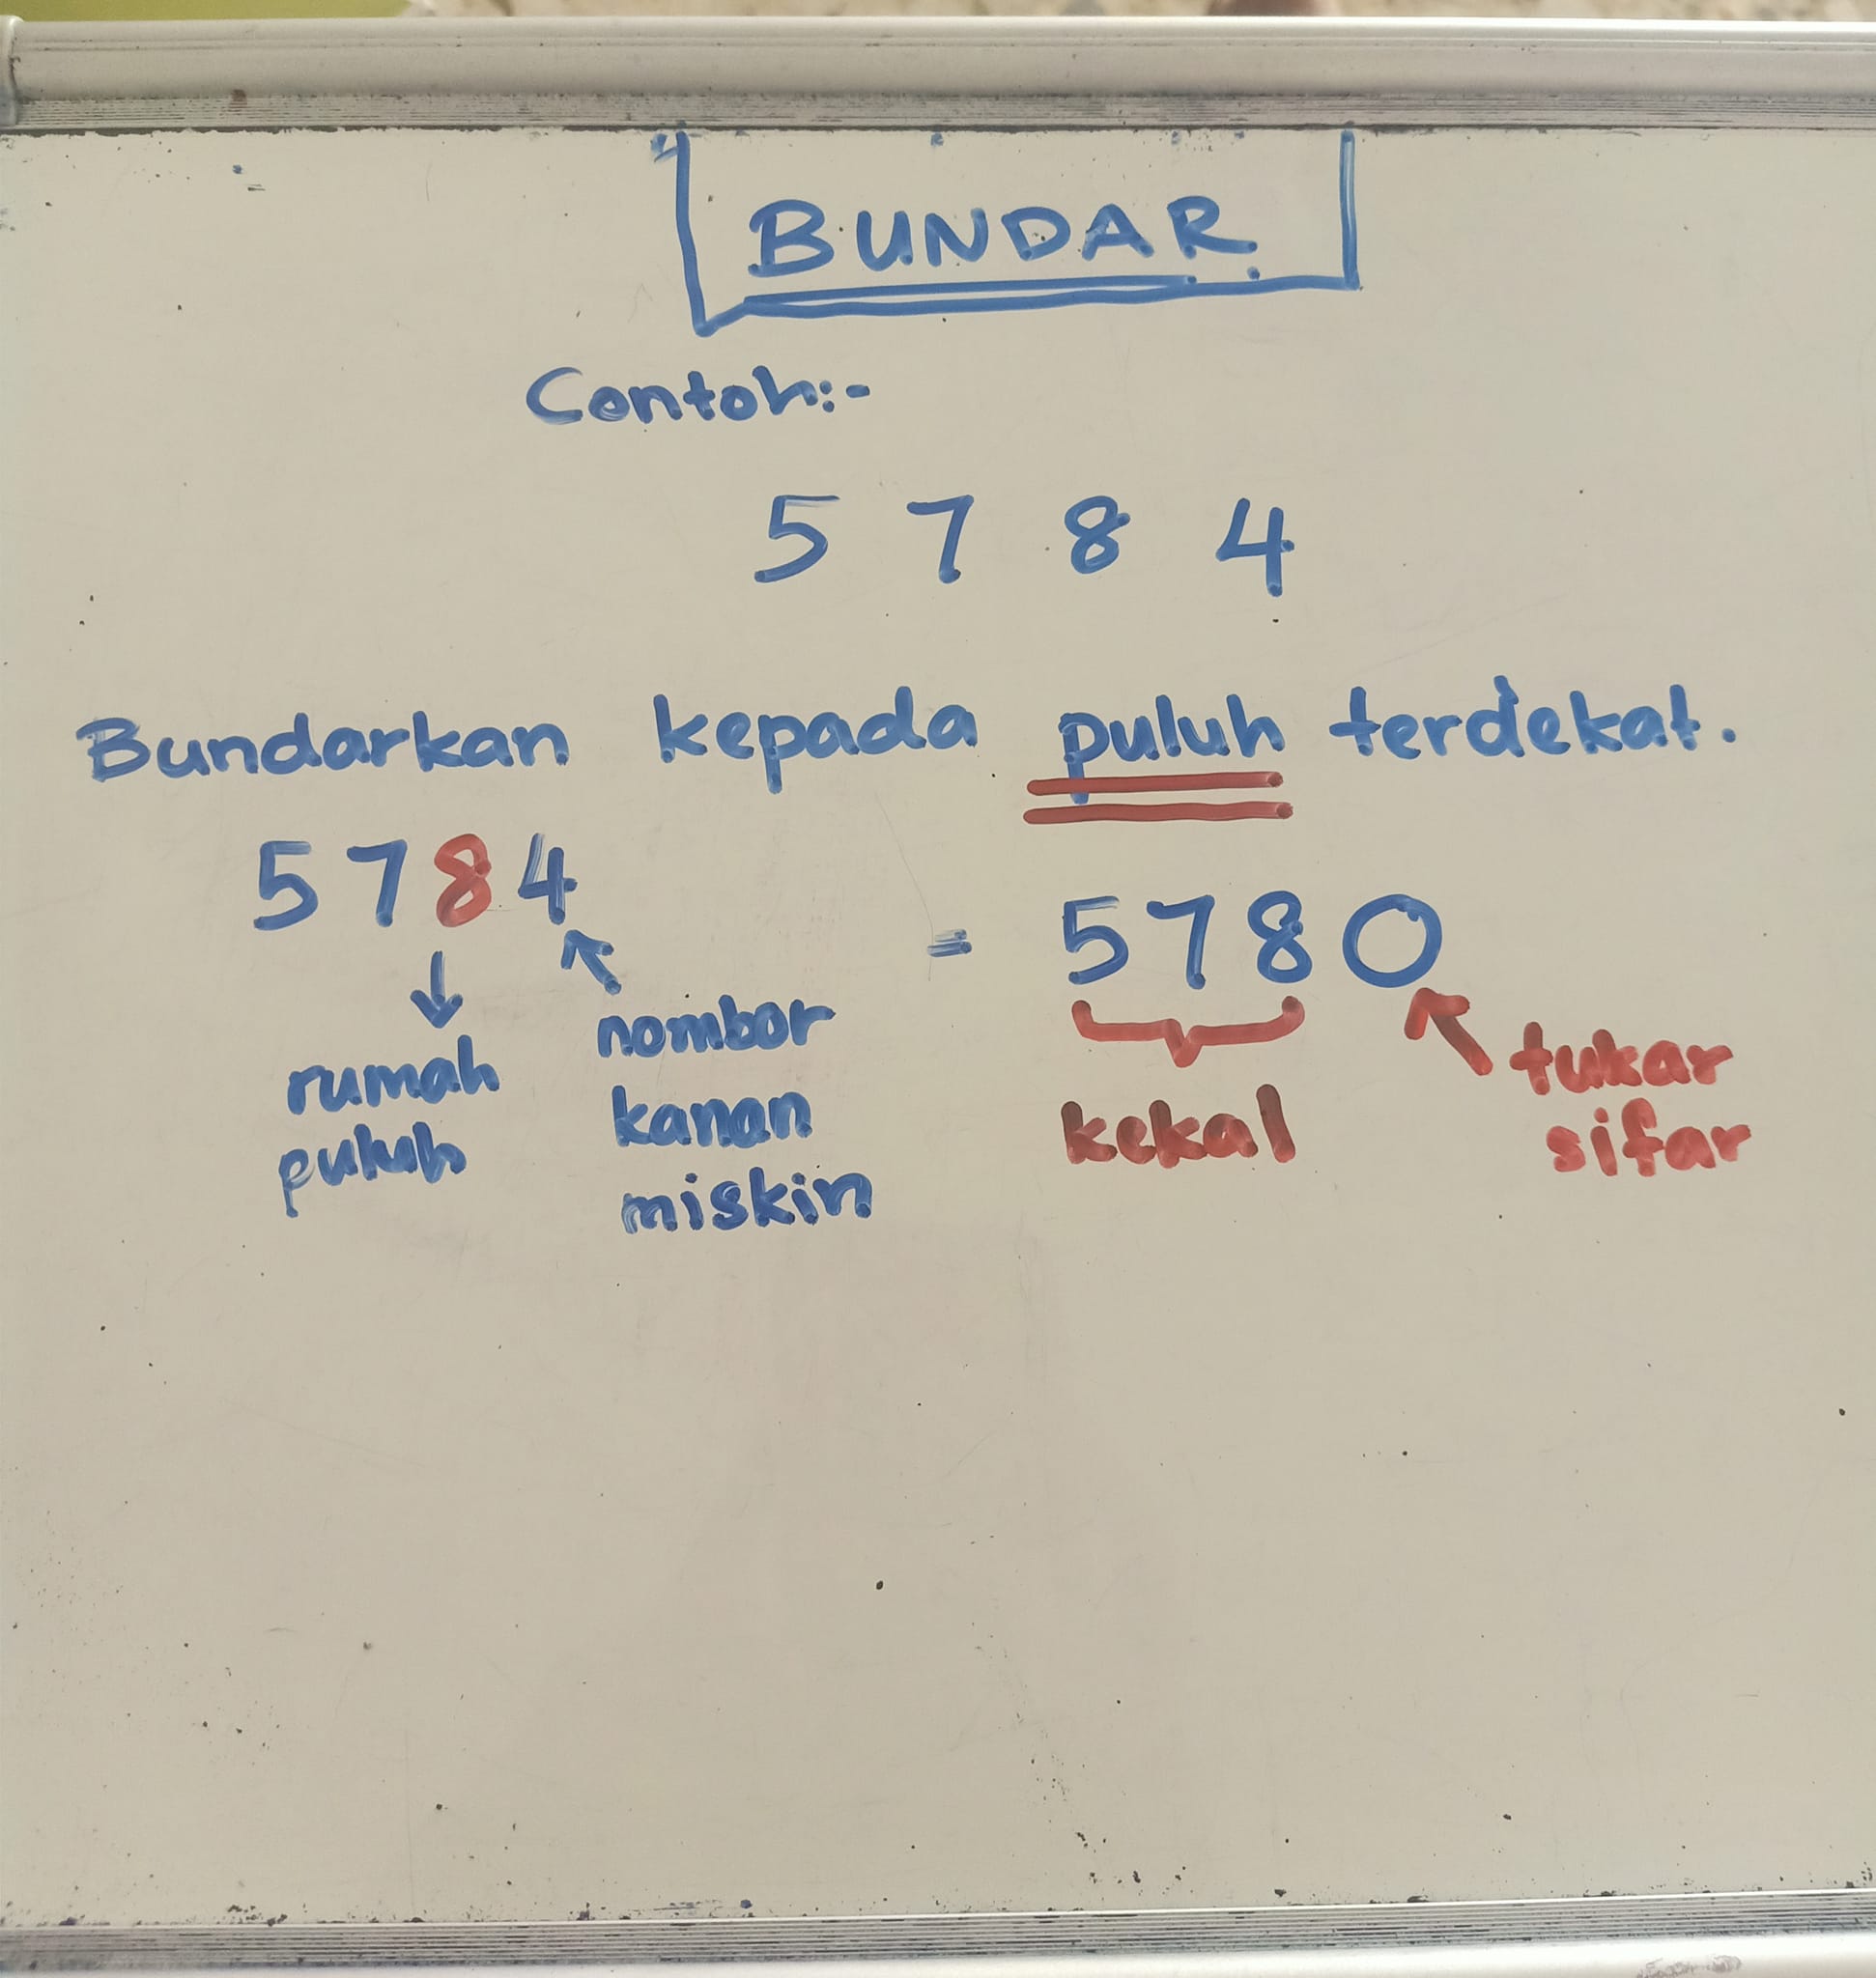 BUNDAR
Contoh:-
5 7 8 4
Bundarkan kepada puluh terdekat.
5 7 8 4
rumah
puluh
nombor
kanan
miskin
= 5 7 8 0
kekal
tukar
sifar